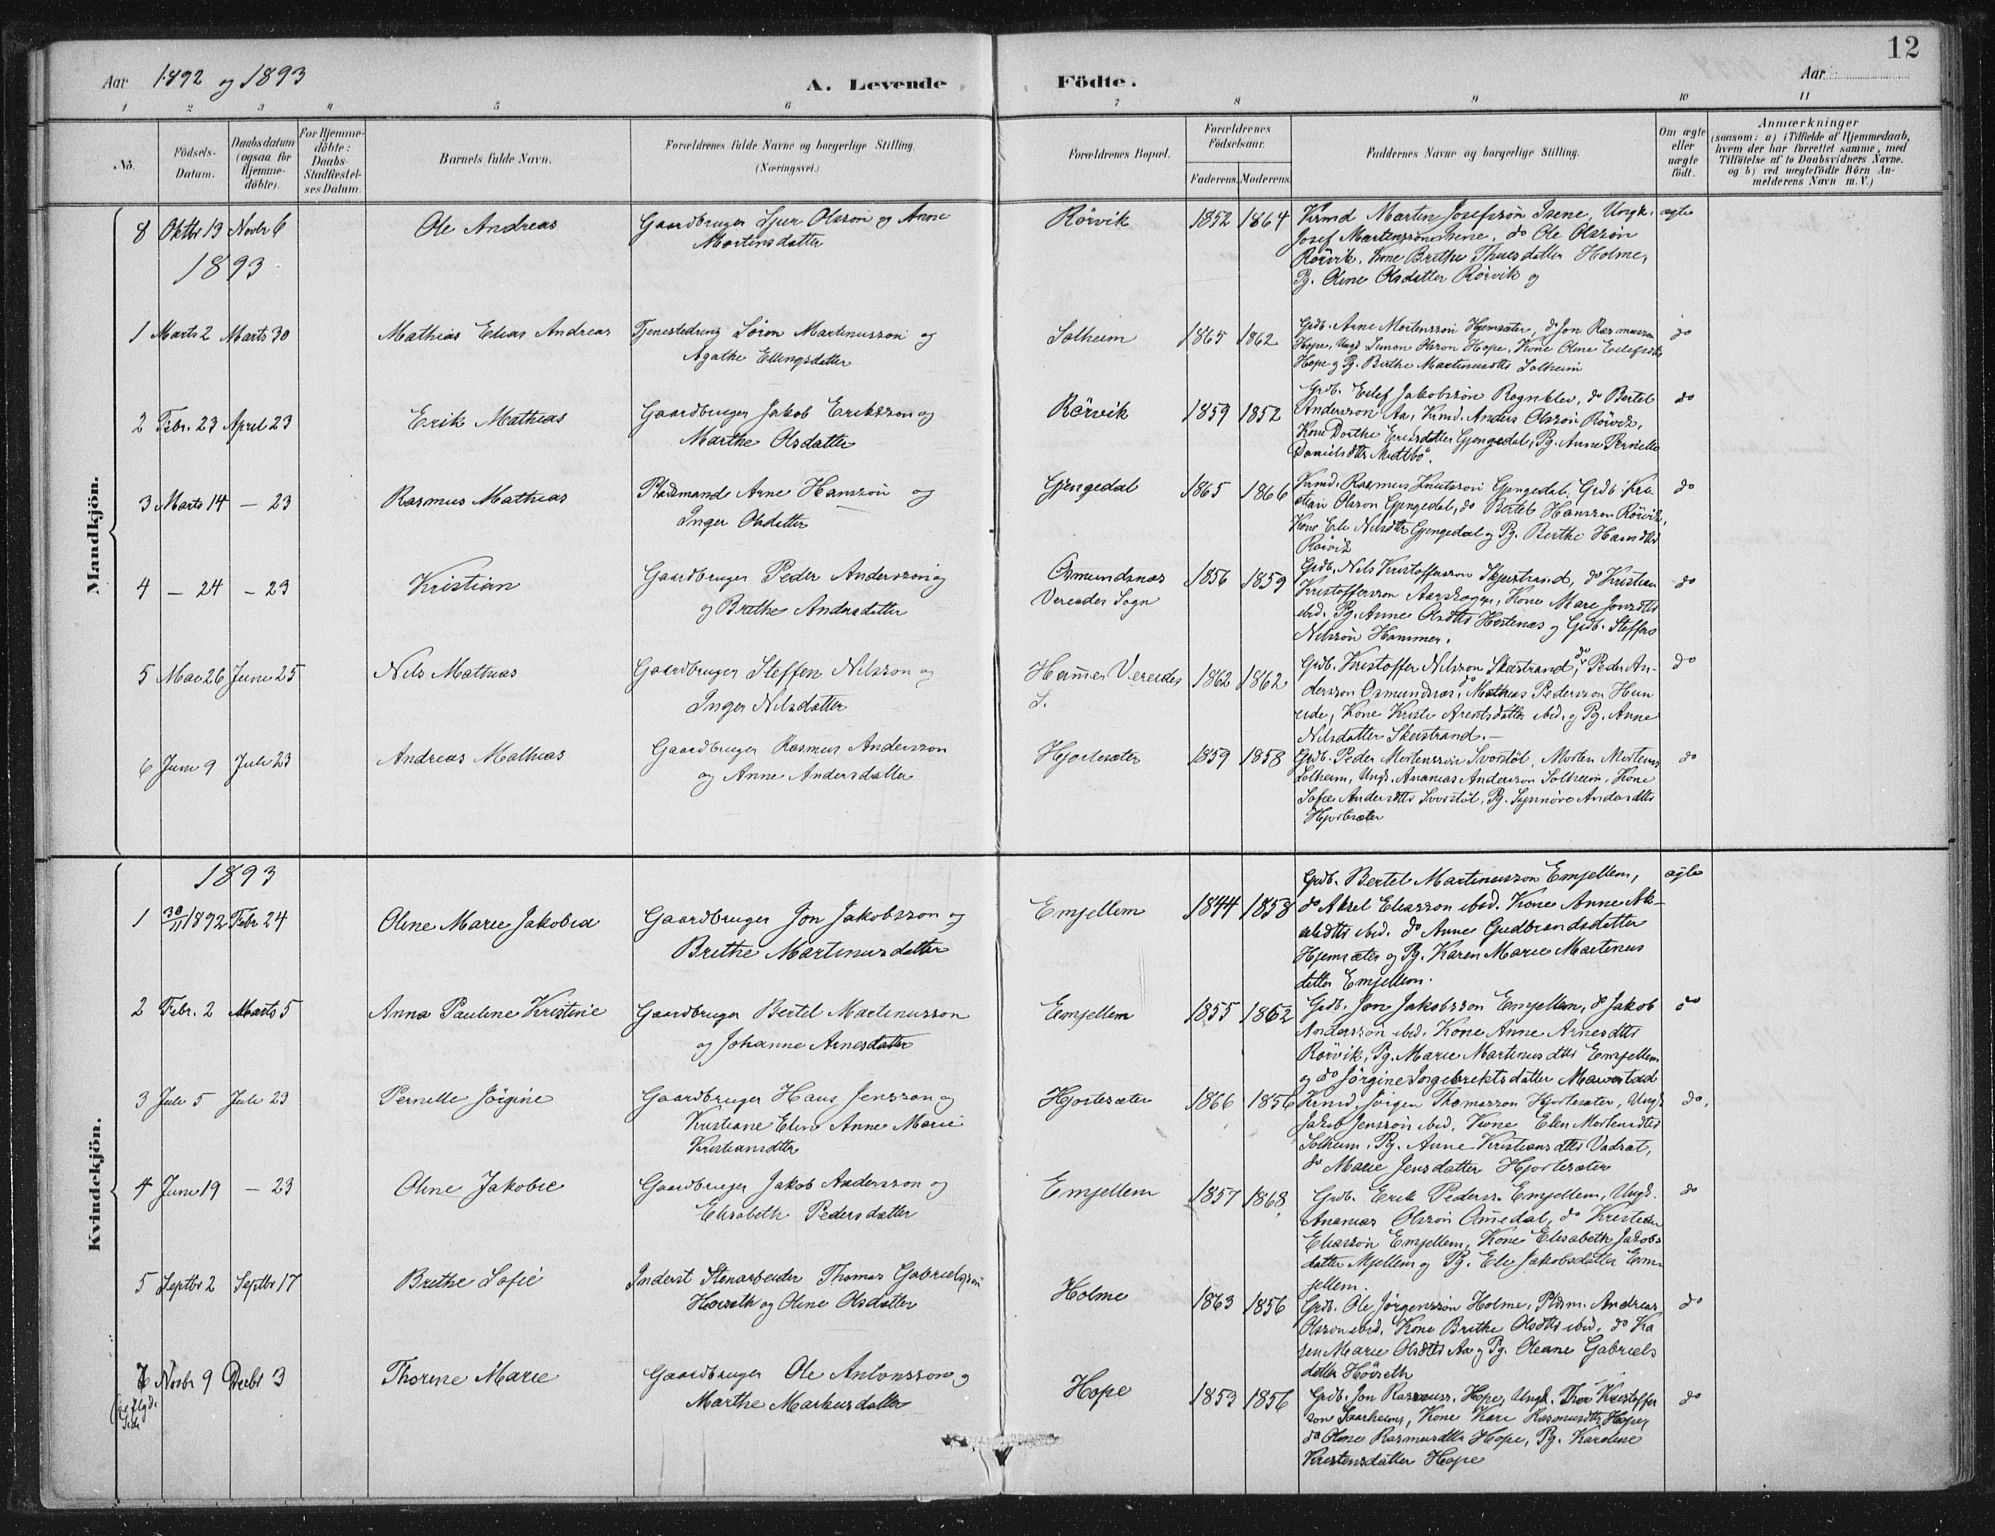 12
Aar 1892 og 1893
A. Levende Födte.
Aar
1 2 3 4 5 6 7 8 9 10 11
No.
Födsels-Datum.
Daabsdatum (ogsaa for Hjemme-döbte).
For Hjemme-döbte: Daabs-Stadfæstel-ses Datum.
Barnets fulde Navn.
Forældrenes fulde Navne og borgerlige Stilling. (Næringsvei.)
Forældrenes Bopæl.
Forældrenes Födselsaar.
Faderens. Moderens.
Faddernes Navne og borgerlige Stilling.
Om ægte eller uægte födt.
Anmærkninger
(saasom: a) i Tilfælde af Hjemmedaab,
hvem der har forrettet samme, med
Tilföielse af to Daabsvidners Navne.
og b) ved uægtefödte Börn An-
melderens Navn m. V.)
Mandkjön.
8 Oktbr 13 Novbr 6 Ole Andreas Gaardbruger Sjur Olsson og Anne
Martensdatter
Rörvik 1852 1864
Krmd Martin Josefsön Isene, Ungk.
Josef Martenssön Isene, do Ole Olssön
Rörvik, Kone Brithe Thuesdatter Holme,
Pg. Oline Olsdatter Rörvik og
ægte
1893
1 Marts 2 Marts 30 Mathias Elias Andreas Tjenestedreng Sören Martinusson og
Agathe Ellingsdatter
Solheim 1865 1862
Grdb. Arne Mortenssön Hjemsæter, do Jon Rasmusson
Hope, Ungk Simon Olsson Hope, Kone Oline
Hope og Pg. Berthe Martinusdtr Solheim
do
2 Febr. 23 April 23 Erik Mathias Gaardbruger Jakob Eriksson og
Marthe Olsdatter
Rörvik 1859 1852
Grdb. Eilef Jakobssön Rognklev, do Bertel
Andersson Aa, Krmd. Anders Olssön Rörvik,
Kone Dorthe Eriksdatter Gjengedal, Pg. Anne Pernille
Danielsdtr
do
3 Marts 14 — 23 Rasmus Mathias Pladsmand Arne Hanssön og
Inger Olsdatter
Gjengedal 1865 1866
Krmd. Rasmus Knutssön Gjengedal, Grdb. Kri-
stian Olsson Gjengedal, do Bertel Hansson Rörvik,
Kone Eli Nilsdtr Gjengedal og Pg. Berthe Hansdtr
Rörvik
do
4 — 24 — 23 Kristian Gaardbruger Peder Anderssön og
og Brithe Andersdatter
Osmundsnæs
Vereides Sogn
1856 1859
Grdb. Nils Kristoffersson Skjestrand, do Kristian
Kristoffersson Aarskogen, Kone Mari Jonsdtr
ibid. Pg. Anne Olsdtr Hestenæs og Grdb. Steffen
Nilssön Hammer.
do
5 Mai 26 Juni 25 Nils Mathias Gaardbruger Steffen Nilsson og
Inger Nilsdatter
Hamer Vereides
S.
1862 1862
Grdb. Kristoffer Nilsson Skæstrand, do Peder An-
dersson Osmundsnæs, do Mathias Pedersson Hun-
eide, Kone Kristi Arentsdatter ibid. og Pg. Anne
Nilsdatter Skeistrand.—
do
6 Juni 9 Juli 23 Andreas Mathias Gaardbruger Rasmus Andersson
og Anne Andersdatter
Hjortesæter 1859 1858
Grdb. Peder Mortenssön Svorstöl, Morten Mortens
Solheim, Ungk. Ananias Andersson Solheim, Kone
Sofie Andersdtr Svorstöl, Pg. Synnöve Andersdtr
Hjortesæter
do
Kvindekjön.
1893
1 30/11 1892 Febr 24 Oline Marie Jakobia Gaardbruger Jon Jakobsson og
Brithe Martinusdatter
Emjellem 1844 1853
Grdb. Bertel Martinusson Emjellem,
do Aksel Eliasson ibid. Kone Anne Ak-
selsdtr ibid. do Anne Gudbrandsdatter
Hjemsæter og Pg. Karen Marie Martinus
datter Emjellem.
ægte
2 Febr. 2 Marts 5 Anna Pauline Kristine Gaardbruger Bertel Martinusson
og Johanne Arnesdatter
Emjellem 1855 1862
Grdb. Jon Jakobsson Emjellem, do Jakob
Anderssön ibid. Kone Anne Arnesdtr
Rörvik, Pg. Marie Martinusdtr Emjellem
og do Jörgine Ingebrektsdatter
do
3 Juli 5 Juli 23 Pernille Jörgine Gaardbruger Hans Jensson og
Kristiane Eline Anne Marie
Kristiansdtr
Hjortesæter 1866 1856
Krmd. Jörgen Thomasson Hjortesæter, Ungk
Jakob Jenssön ibid. Kone Elen Mortensdtr
Solheim, Pg. Anne Kristiansdtr Vadsæt,
do Marie Jensdatter Hjortesæter
do.
4 Juni 19 — 23 Oline Jakobie Gaardbruger Jakob Andersson og
Elisabeth Pedersdatter
Emjellem 1857 1868
Grdb. Erik Pederss. Emjellem, Ungk.
Ananias Olssön Omedal, do Kristian
Eliassön Emjellem, Kone Elisabeth Jakobs
datter Mjellem og Pg. Eli Jakobsdatter Em-
jellem.
do
5 Septbr 2 Septbr 17 Brithe Sofie Inderst Stenarbeider Thomas Gabrielssön
Høiseth og Oline Olsdatter
Holme 1863 1856
Grdb. Ole Jörgenssön Holme, Pldsm. Andreas
Olsson ibid. Kone Brithe Olsdtr ibid. do Ka-
ren Marie Olsdtr Aa og Pg. Oleane Gabriels
datter Höiseth
do
7 Novbr 9 Decbr 3 Thorine Marie Gaardbruger Ole Antonsson og
Marthe Markusdatter
Hope 1853 1856
Grdb. Jon Rasmuss. Hope, Ungk. Thor Kristoffer
son Saarheim, Kone Kari Rasmusdtr Hope,
do Oline Rasmusdtr Hope, Pg. Karoline
Kristensdatter Hope
do
(se flgd. Side